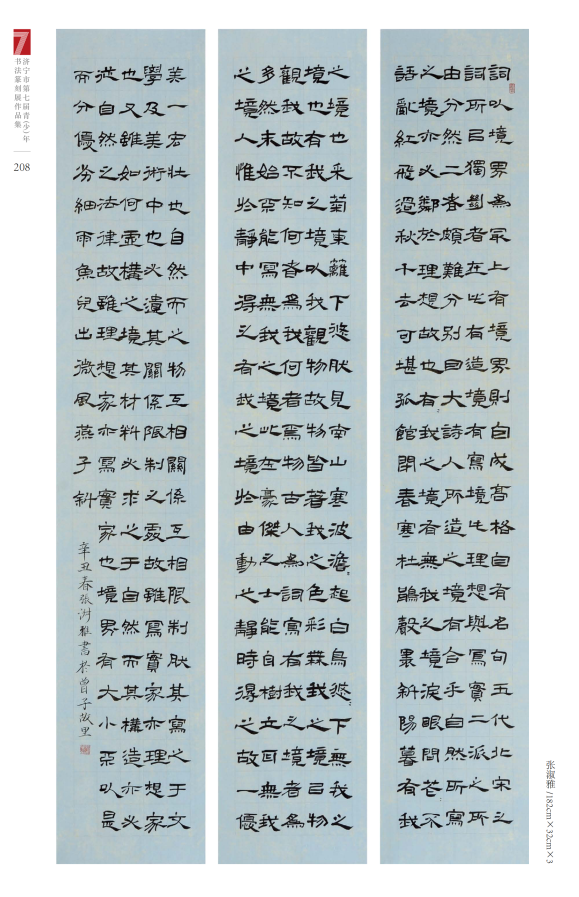 济宁市第七届青(少)年
书法篆刻展作品集
208
詞以境界為最上有境界則自成高格自有名句五代北宋之
詞所以獨絕者在此有造境有寫境此理想與寫實二派之所
由分然二者頗難分別曰大詩人所造之境有合乎自然所寫
之境亦必鄰於理想故也有我之境有無我之境淚眼問花不
語亂紅飛過秋千去可堪孤館閉春寒杜鵑聲裏斜陽暮有我
之境也采菊東籬下悠然見南山寒波澹起白鳥悠下無我之
境也有我之境以我觀物故物皆著我之色彩無我之境以物
觀我故不知何者為我何者為物古人為詞寫有我之境者為
多然未始不能寫無我之境此在豪傑之士能自樹立耳無我
之境人惟於靜中得之有我之境於由動之靜時得之故一優
美一宏壯也自然而之物互相關係互相限制然其寫之于文
學及美術中也必遺其關係限制之處故雖寫實家亦理想家
也又雖如何虛構之境其材料必求之于自然而其構造亦必
從自然之法律故雖理想家亦寫實家也境界有大小不以是
而分優劣細雨魚兒出微風燕子斜
辛丑春張淑雅書於曾子故里
张淑雅/182cm×32cm×3